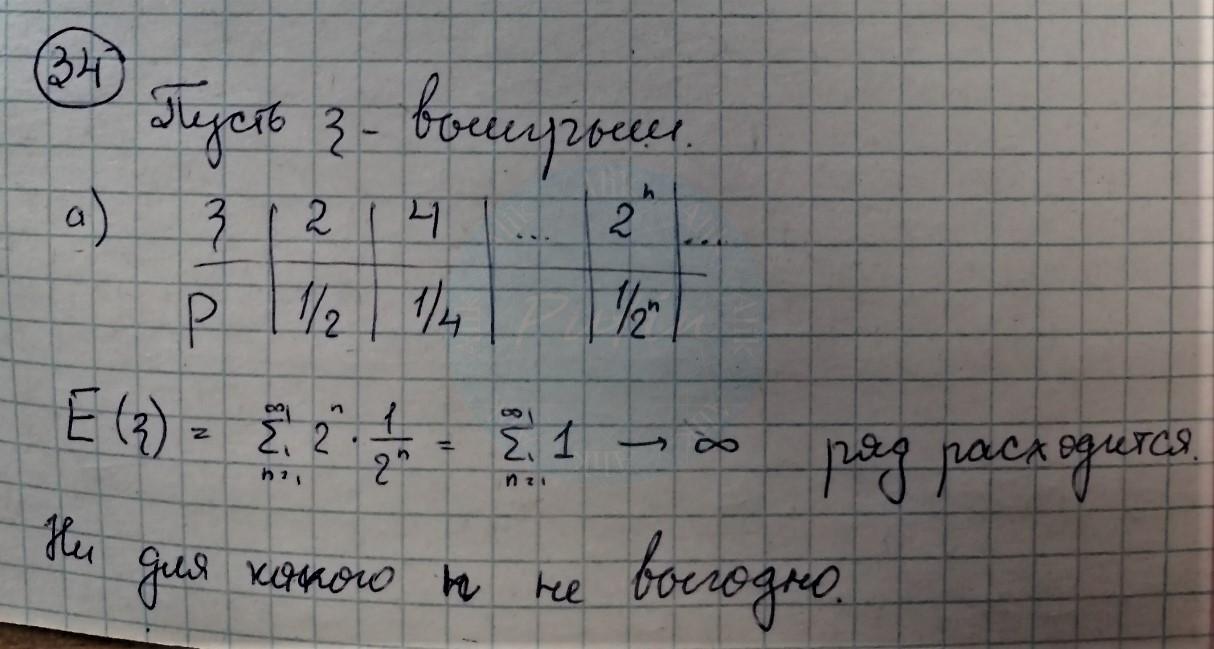 34
Пусть ξ - выигрыш.
а) ξ | 2 | 4 | ... | 2ⁿ | ...
P | 1/2 | 1/4 | | 1/2ⁿ |
E(ξ) = ∑ₙ₌₁^∞ 2ⁿ · 1/2ⁿ = ∑ₙ₌₁^∞ 1 → ∞ ряд расходится.
Ни для какого n не выгодно.